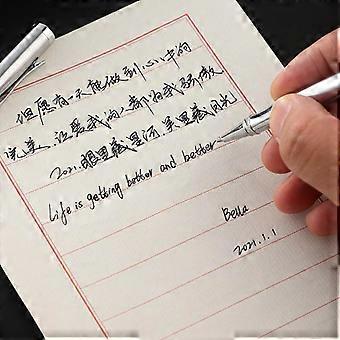 但愿有一天能做到心中的
完美.让爱我的人都为我骄傲
2021.眼里藏星河.笑里藏风光
Life is getting better and better
Bella
2021.1.1